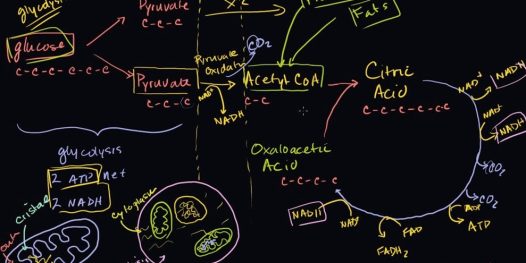 glycolysis
Pyruvate
X 2
C-C-C
Fats
glucose
CO₂
Pyruvate
Oxidation
Citric
Acid
Pyruvate
Acetyl CoA
C-C-C-C-C-C
C-C-C
NAD⁺
C-C
C-C-C-C-C-C
NAD⁺
NADH
NADH
NAD⁺
NADH
glycolysis
Oxaloacetic
Acid
2 ATP Net
2 NADH
C-C-C-C
CO₂
CO₂
cristae
cytoplasm
NADH
NAD⁺
FAD
FADH₂
ADP
ATP